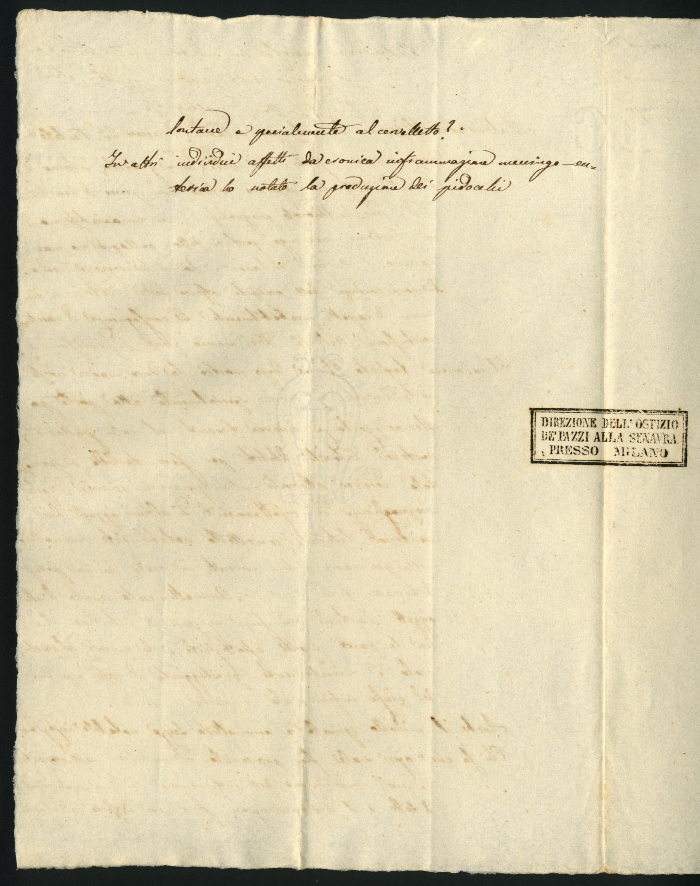 lontane e specialmente al cervelletto?.
In altri individui affetti da cronica infiammazione meningo-en=
terica ho notato la produzione dei pidocchi
DIREZIONE DELL' OSPIZIO
DE' PAZZI ALLA SENAVRA
PRESSO MILANO